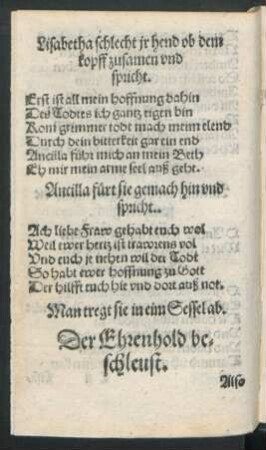 Lisabetha schlecht jr hend ob dem
kopff zusamen vnd
spricht.
Erst ist all mein hoffnung dahin
Des Todtes ich gantz eigen bin
Kom grimmer todt mach meim elend
Durch dein bitterkeit gar ein end
Ancilla führ mich an mein Beth
Eh mir mein arme seel auß geht.
Ancilla fürt sie gemach hin vnd
spricht..
Ach liebe Fraw gehabt euch wol
Weil ewer hertz ist trawrens vol
Vnd euch je nehen wil der Todt
So habt ewer hoffnung zu Gott
Der hilfft euch hie vnd dort auß not.
Man tregt sie in eim Sessel ab.
Der Ehrenhold be-
schleust.
Also